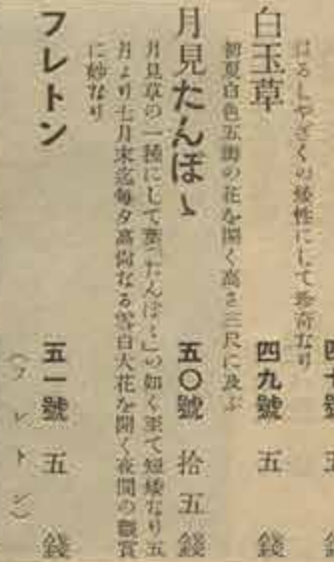 はるしやぎくの矮性にして珍奇なり
白玉草　四九號　五錢
初夏白色五瓣の花を開く高さ三尺に及ぶ
月見たんぽゝ　五〇號　拾五錢
月見草の一種にして葉「たんぽゝ」の如く至て短矮なり五
月より七月末迄每夕高尙なる雪白大花を開く夜間の觀賞
に妙なり
フレトン　五一號　五錢
（フレトン）